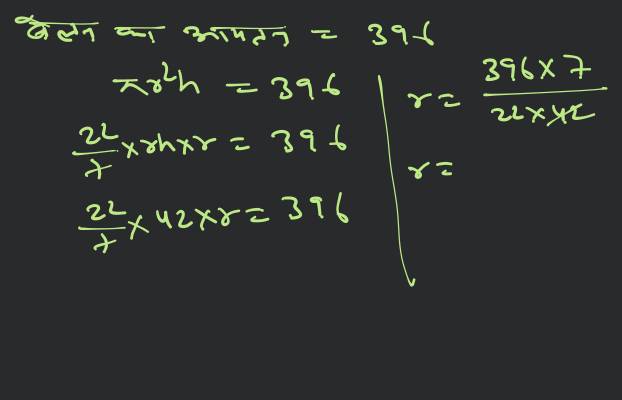 बेलन का आयतन = 396
πr²h = 396
22/7 × rh × r = 396
22/7 × 42 × r = 396
r = 396 × 7 / 22 × 42
r =